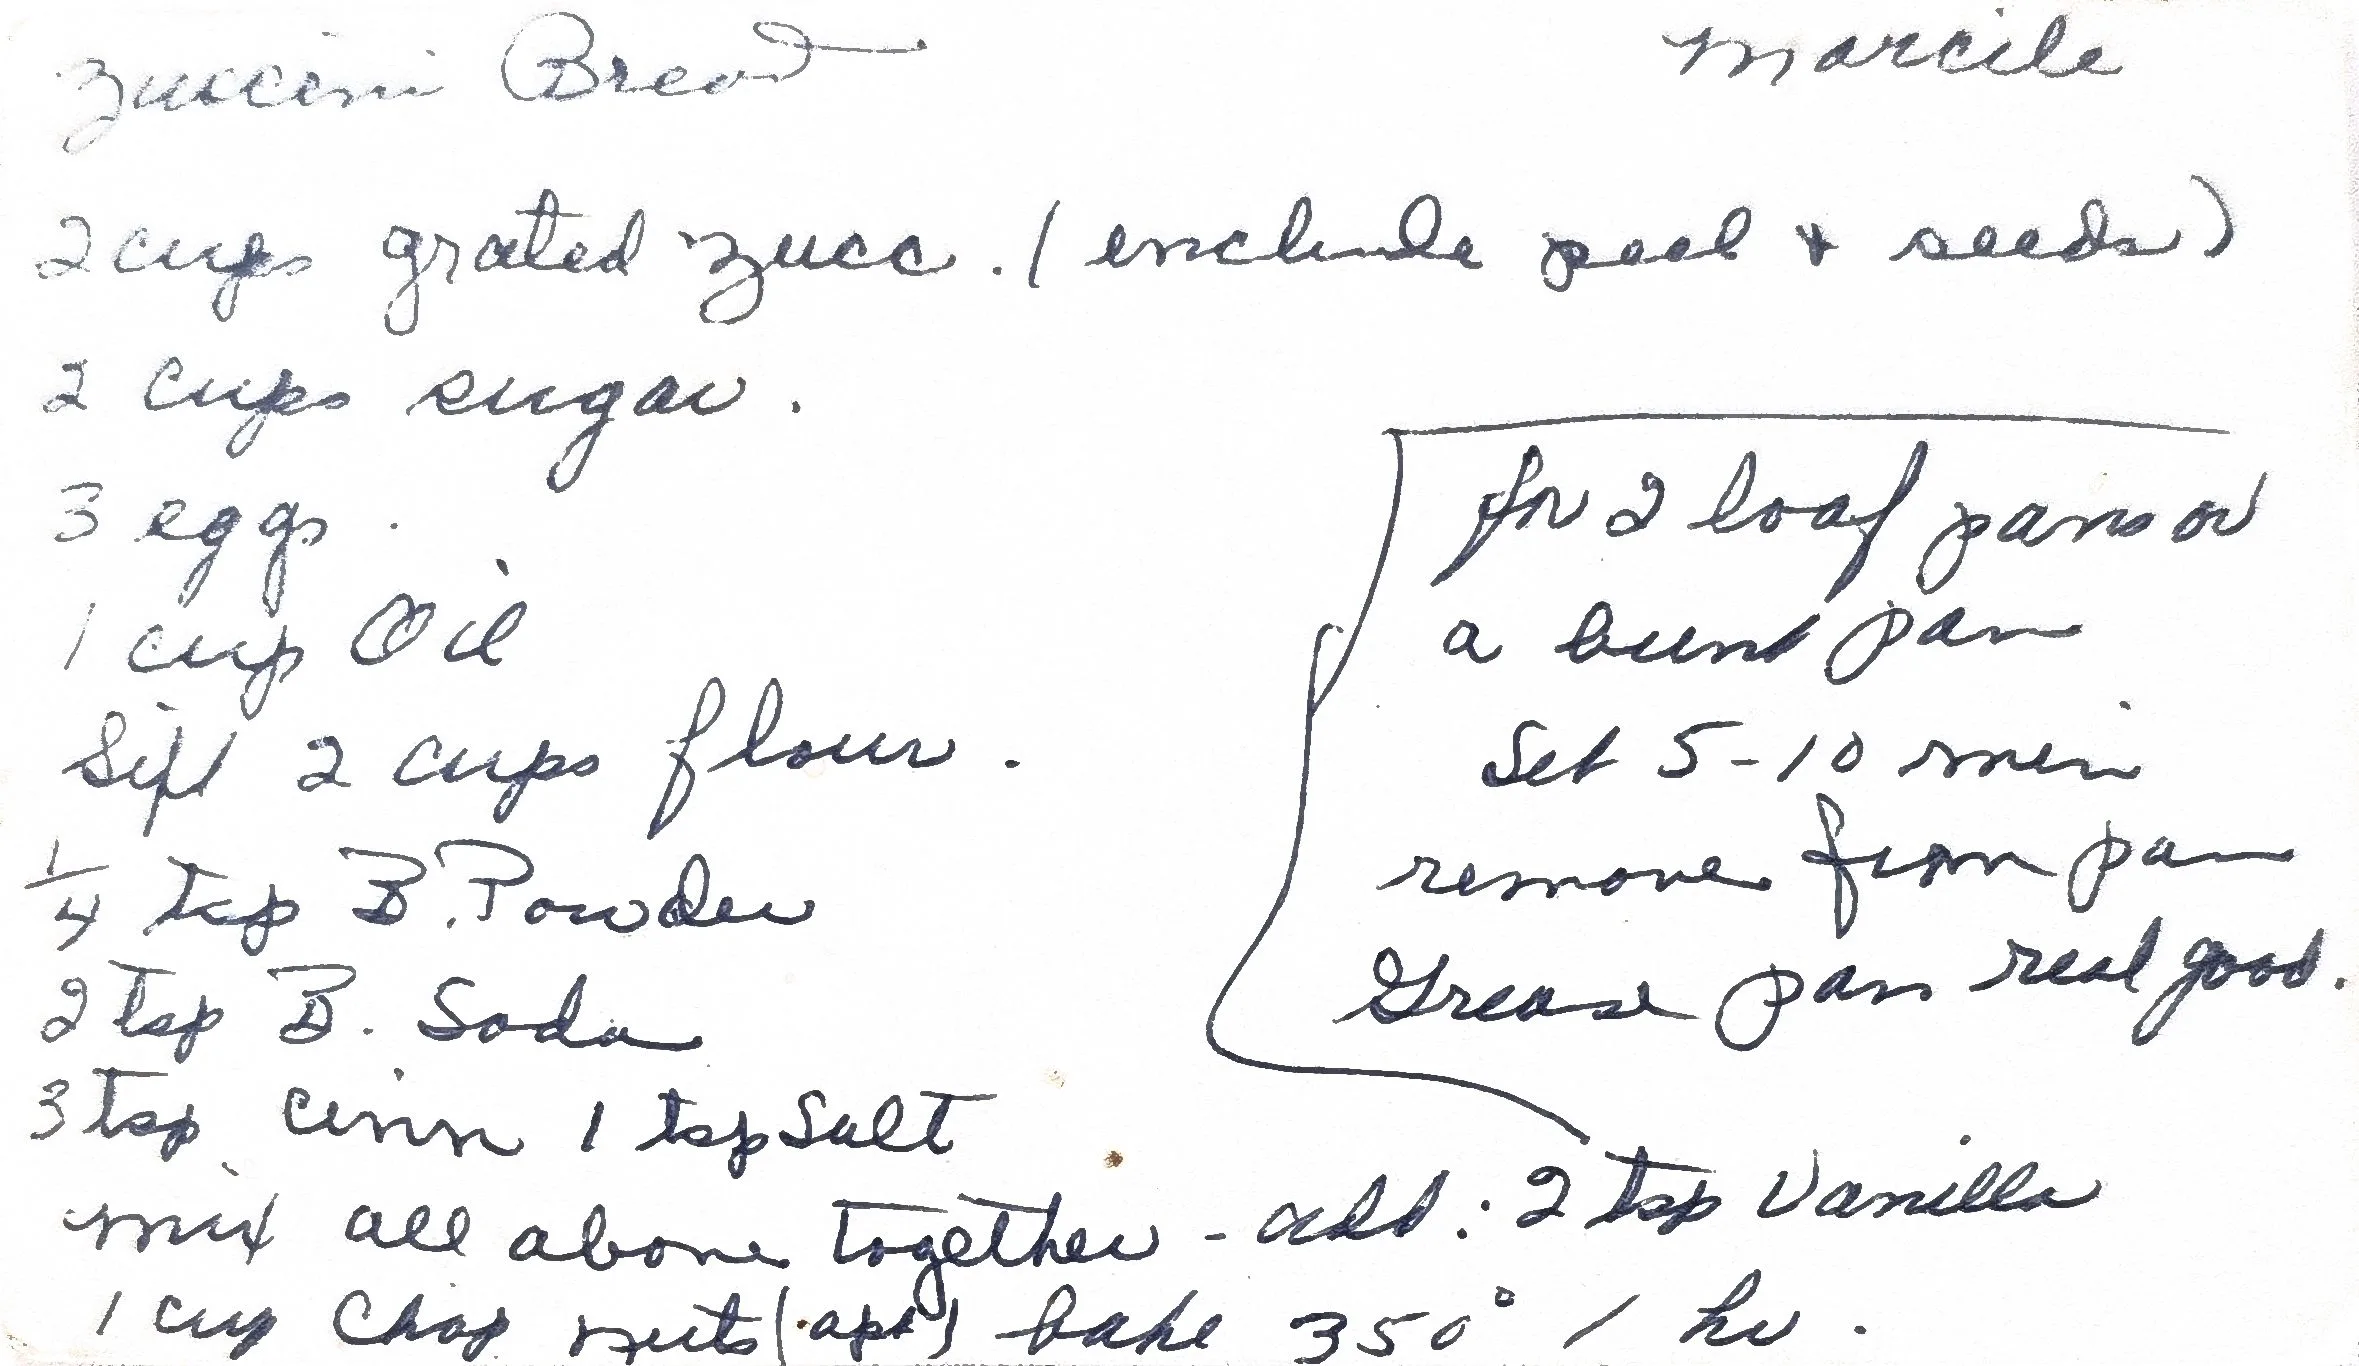 Zuccini Bread Marcile
2 cups grated zucc. (include peel + seeds)
2 cups sugar.
3 eggs.
1 cup Oil
Sift 2 cups flour.
1/4 tsp B. Powder
2 tsp B. Soda
3 tsp cinn 1 tsp Salt
mix all above together - add: 2 tsp Vanilla
1 cup Chop nuts (opt) bake 350° 1 hr.
for 2 loaf pans or
a bunt pan
Set 5-10 min
remove from pan
Grease pan real good.